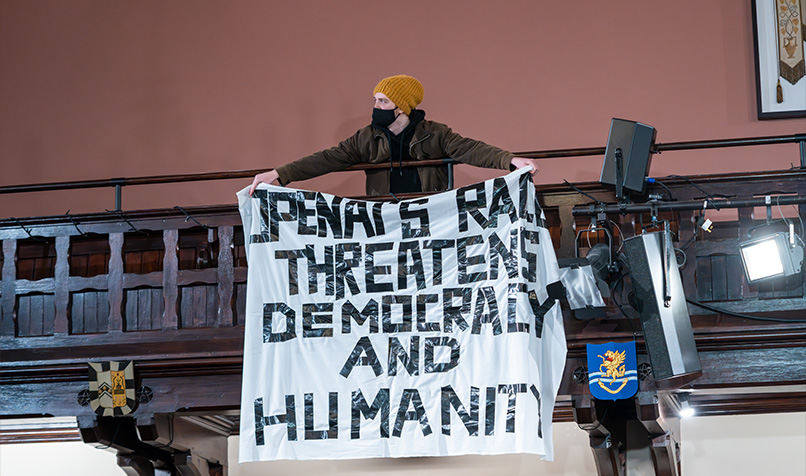 OPENAI'S
THREATENS
DEMOCRACY
AND
HUMANITY